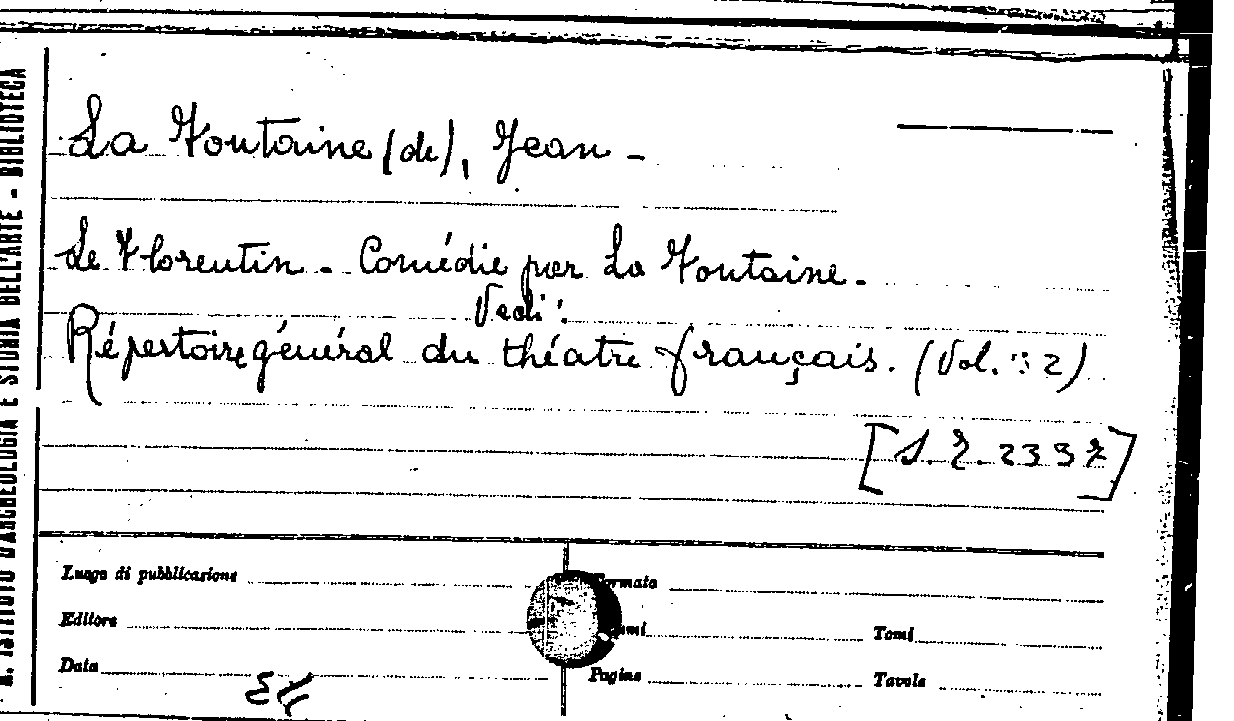 R. ISTITUTO D'ARCHEOLOGIA E STORIA DELL'ARTE - BIBLIOTECA
La Fontaine (de), Jean -
Le Florentin - Comédie par La Fontaine -
Vedi:
Répertoire général du théatre français. (Vol.: 2)
Luogo di pubblicazione
Formato
Editore
Tomi
Data
Pagine
Tavole